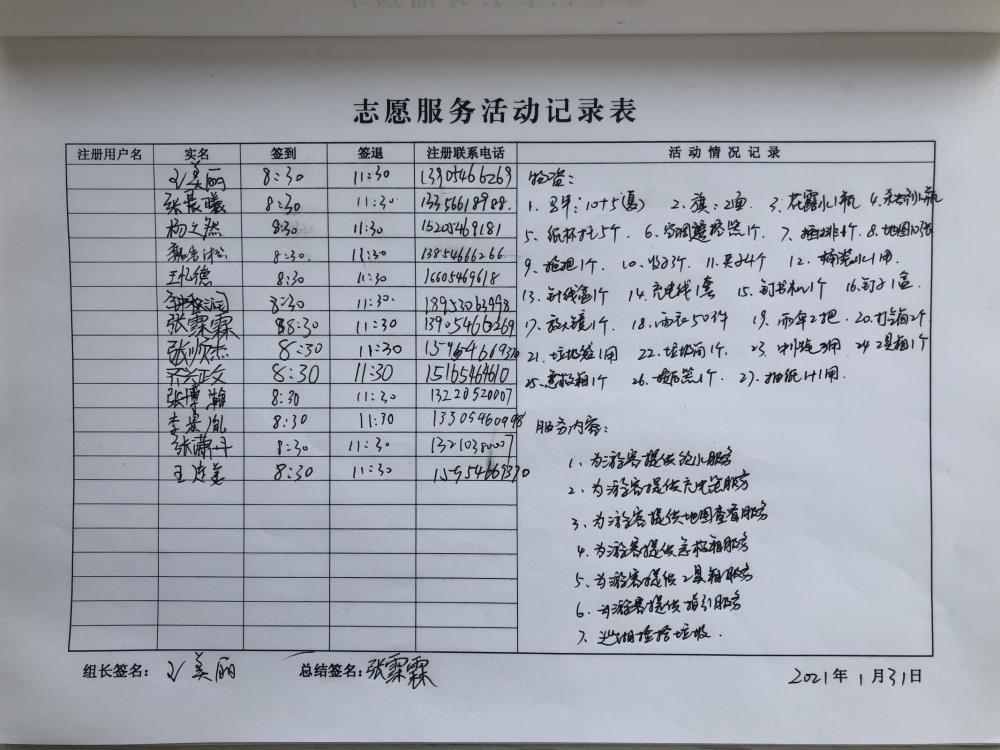 志愿服务活动记录表
注册用户名 实名 签到 签退 注册联系电话 活动情况记录
王美丽 8:30 11:30 13905466269
张晨曦 8:30 11:30 13356618988.
杨文然 8:30 11:30 15205469181
8:30. 11:30 13854666266
王怀德 8:30 11:30 16605469618
8:30 11:30. 18953063998
张霖霖 8:30 11:30 13905466269
张顺杰 8:30 11:30
齐兴政 8:30 11:30 15165464610
张博瀚 8:30 11:30 13220520007
李景胤 8:30 11:30
张潇丹 8:30 11:30
王连美 8:30 11:30 15954669370
物资:
1. 马甲: 10+5(黄) 2. 旗: 2面 3. 花露水1瓶
5. 纸杯托5个. 6. 空调遥控器1个. 7. 插排1个 8. 地图10张
9. 拖把1个. 10. 11. 12.
13. 针线盒1个 14. 充电线1套 15. 订书机1个 16. 钉子1盒
17. 放大镜1个. 18. 雨衣50件 19. 雨伞2把. 20. 打气筒2个
21. 22. 垃圾筒1个. 23. 24. 工具箱1个
25. 急救箱1个 26. 27. 抽纸
服务内容:
1. 为游客提供饮水服务
2. 为游客提供充电宝服务
3. 为游客提供地图查看服务
4. 为游客提供急救箱服务
5. 为游客提供工具箱服务
6. 为游客提供指引服务
7. 捡拾垃圾.
组长签名: 王美丽 总结签名: 张霖霖 2021年1月31日